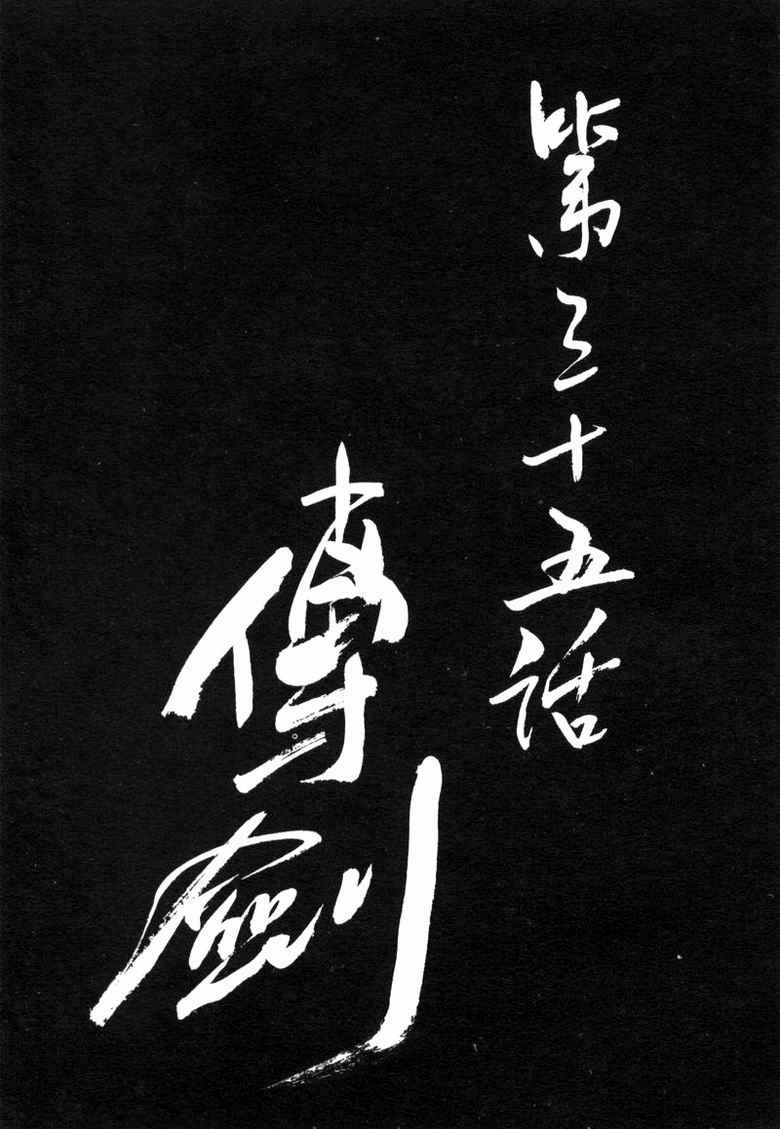 第三十五話
傳劍